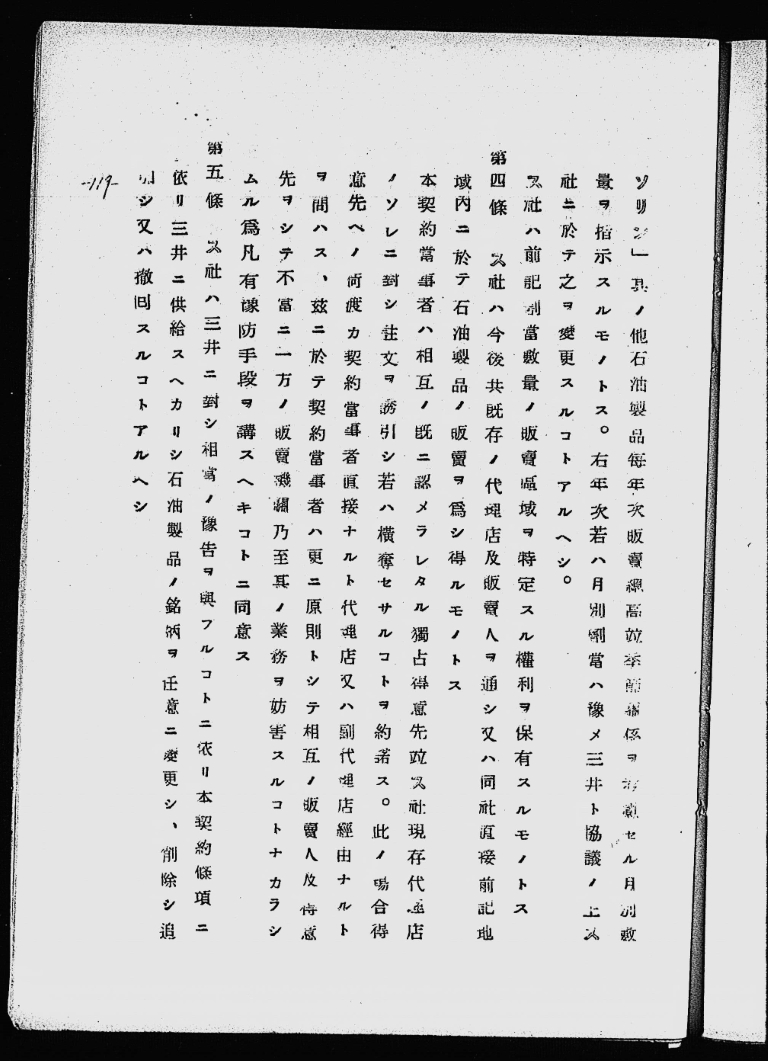 ソリン」其ノ他石油製品每年次販賣總高竝季節關係ヲ考慮セル月別數
量ヲ指示スルモノトス。右年次若ハ月別割當ハ豫メ三井ト協議ノ上ス
社ニ於テ之ヲ變更スルコトアルヘシ。
ス社ハ前記割當數量ノ販賣區域ヲ特定スル權利ヲ保有スルモノトス
第四條　ス社ハ今後共既存ノ代理店及販賣人ヲ通シ又ハ同社直接前記地
域內ニ於テ石油製品ノ販賣ヲ爲シ得ルモノトス
本契約當事者ハ相互ノ既ニ認メラレタル獨占得意先竝ス社現存代理店
ノソレニ對シ注文ヲ誘引シ若ハ橫奪セサルコトヲ約諾ス。此ノ場合得
意先ヘノ荷渡カ契約當事者直接ナルト代理店又ハ副代理店經由ナルト
ヲ問ハス、玆ニ於テ契約當事者ハ更ニ原則トシテ相互ノ販賣人及得意
先ヲシテ不當ニ一方ノ販賣機構乃至其ノ業務ヲ妨害スルコトナカラシ
ムル爲凡有豫防手段ヲ講スヘキコトニ同意ス
第五條　ス社ハ三井ニ對シ相當ノ豫告ヲ與フルコトニ依リ本契約條項ニ
依リ三井ニ供給スヘカリシ石油製品ノ銘柄ヲ任意ニ變更シ、削除シ追
加シ又ハ撤回スルコトアルヘシ
-119-